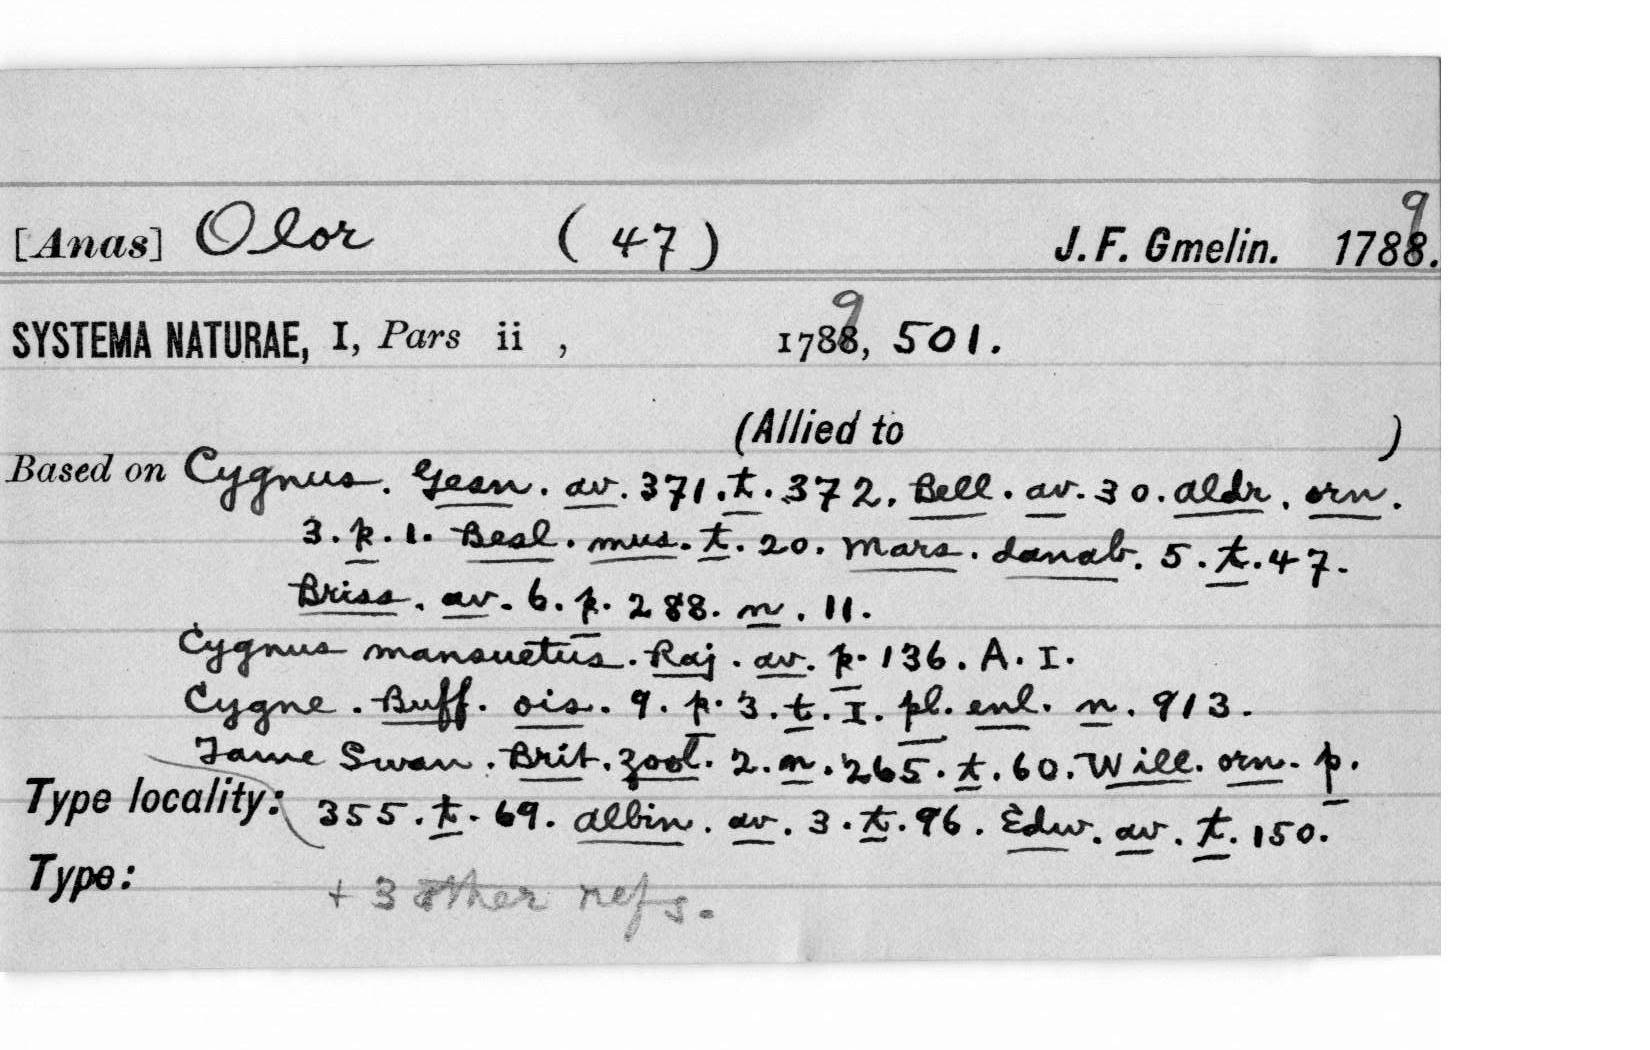 [Anas] Olor ( 47 ) J. F. Gmelin. 1788. 9
SYSTEMA NATURAE, I, Pars ii , 1788, 9 501.
(Allied to )
Based on Cygnus. Gesn. av. 371. t. 372. Bell. av. 30. aldr. orn.
3. p. 1. Besl. mus. t. 20. Mars. danub. 5. t. 47.
Briss. av. 6. p. 288. n. 11.
Cygnus mansuetus. Raj. av. p. 136. A. I.
Cygne. Buff. ois. 9. p. 3. t. I. pl. enl. n. 913.
Tame Swan. Brit. zool. 2. n. 265. t. 60. Will. orn. p.
Type locality: 355. t. 69. albin. av. 3. t. 96. Edw. av. t. 150.
Type: + 3 other refs.